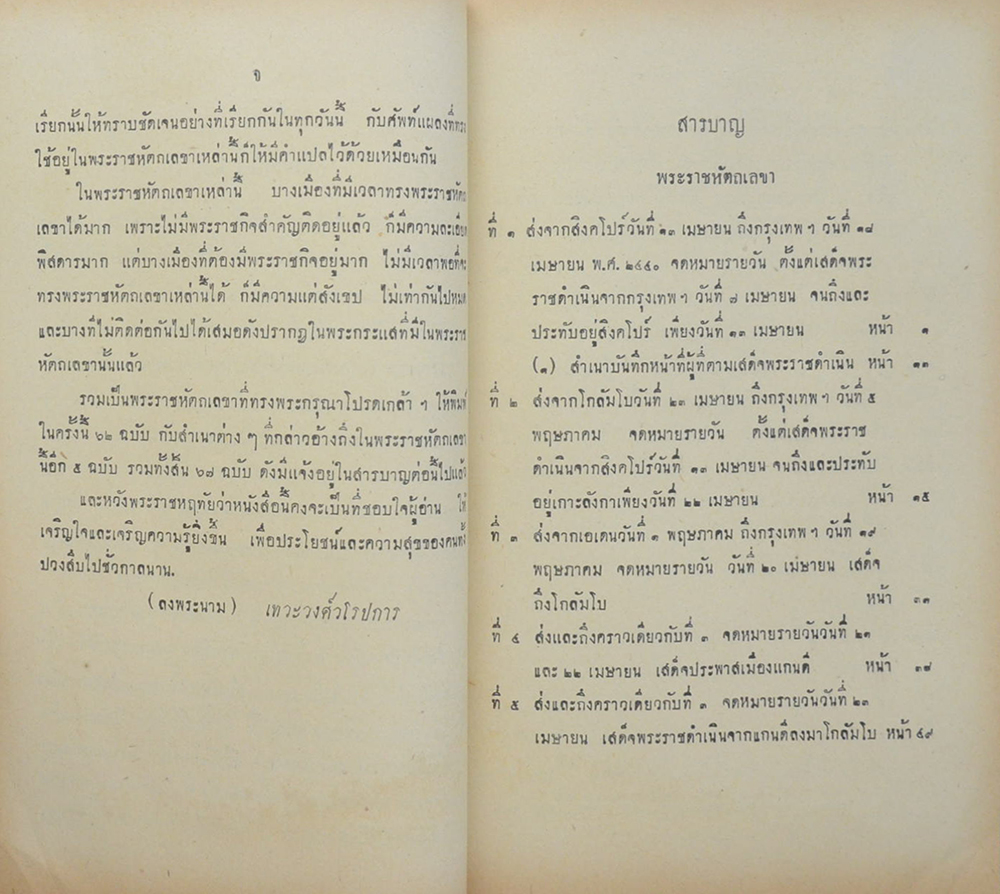 จ
เรียกนั้นให้ทราบชัดเจนอย่างที่เรียกกันในทุกวันนี้ กับศัพท์แผลงที่ทรง
ใช้อยู่ในพระราชหัตถเลขาเหล่านี้ก็ให้มีคำแปลไว้ด้วยเหมือนกัน
ในพระราชหัตถเลขาเหล่านี้ บางเมืองที่มีเวลาทรงพระราชหัตถ
เลขาได้มาก เพราะไม่มีพระราชกิจสำคัญติดอยู่แล้ว ก็มีความละเอียด
พิสดารมาก แต่บางเมืองที่ต้องมีพระราชกิจอยู่มาก ไม่มีเวลาพอที่จะ
ทรงพระราชหัตถเลขาเหล่านี้ได้ ก็มีความแต่สังเขป ไม่เท่ากันไปหมด
และบางที่ไม่ติดต่อกันไปได้เสมอดังปรากฏในพระกระแสที่มีในพระราช
หัตถเลขานั้นแล้ว
รวมเป็นพระราชหัตถเลขาที่ทรงพระกรุณาโปรดเกล้า ฯ ให้พิมพ์
ในครั้งนี้ ๖๒ ฉบับ กับสำเนาต่าง ๆ ที่กล่าวอ้างถึงในพระราชหัตถเลขา
นี้อีก ๕ ฉบับ รวมทั้งสิ้น ๖๗ ฉบับ ดังมีแจ้งอยู่ในสารบาญต่อนี้ไปแล้ว
และหวังพระราชหฤทัยว่าหนังสือนี้คงจะเป็นที่ชอบใจผู้อ่าน ให้
เจริญใจและเจริญความรู้ยิ่งขึ้น เพื่อประโยชน์และความสุขของคนทั้ง
ปวงสืบไปชั่วกาลนาน.
(ลงพระนาม) เทวะวงศ์วโรปการ
สารบาญ
พระราชหัตถเลขา
ที่ ๑ ส่งจากสิงคโปร์วันที่ ๑๓ เมษายน ถึงกรุงเทพ ฯ วันที่ ๑๘
เมษายน พ.ศ. ๒๔๔๐ จดหมายรายวัน ตั้งแต่เสด็จพระ
ราชดำเนินจากกรุงเทพ ฯ วันที่ ๗ เมษายน จนถึงและ
ประทับอยู่สิงคโปร์ เพียงวันที่ ๑๓ เมษายน หน้า ๑
(๑) สำเนาบันทึกหน้าที่ผู้ที่ตามเสด็จพระราชดำเนิน หน้า ๑๓
ที่ ๒ ส่งจากโกลัมโบวันที่ ๒๓ เมษายน ถึงกรุงเทพ ฯ วันที่ ๕
พฤษภาคม จดหมายรายวัน ตั้งแต่เสด็จพระราช
ดำเนินจากสิงคโปร์วันที่ ๑๓ เมษายน จนถึงและประทับ
อยู่เกาะลังกาเพียงวันที่ ๒๒ เมษายน หน้า ๑๕
ที่ ๓ ส่งจากเอเดนวันที่ ๑ พฤษภาคม ถึงกรุงเทพ ฯ วันที่ ๑๙
พฤษภาคม จดหมายรายวัน วันที่ ๒๐ เมษายน เสด็จ
ถึงโกลัมโบ หน้า ๓๑
ที่ ๔ ส่งและถึงคราวเดียวกับที่ ๓ จดหมายรายวันวันที่ ๒๑
และ ๒๒ เมษายน เสด็จประพาสเมืองแกนดี หน้า ๓๗
ที่ ๕ ส่งและถึงคราวเดียวกับที่ ๓ จดหมายรายวันวันที่ ๒๓
เมษายน เสด็จพระราชดำเนินจากแกนดีลงมาโกลัมโบ หน้า ๔๙